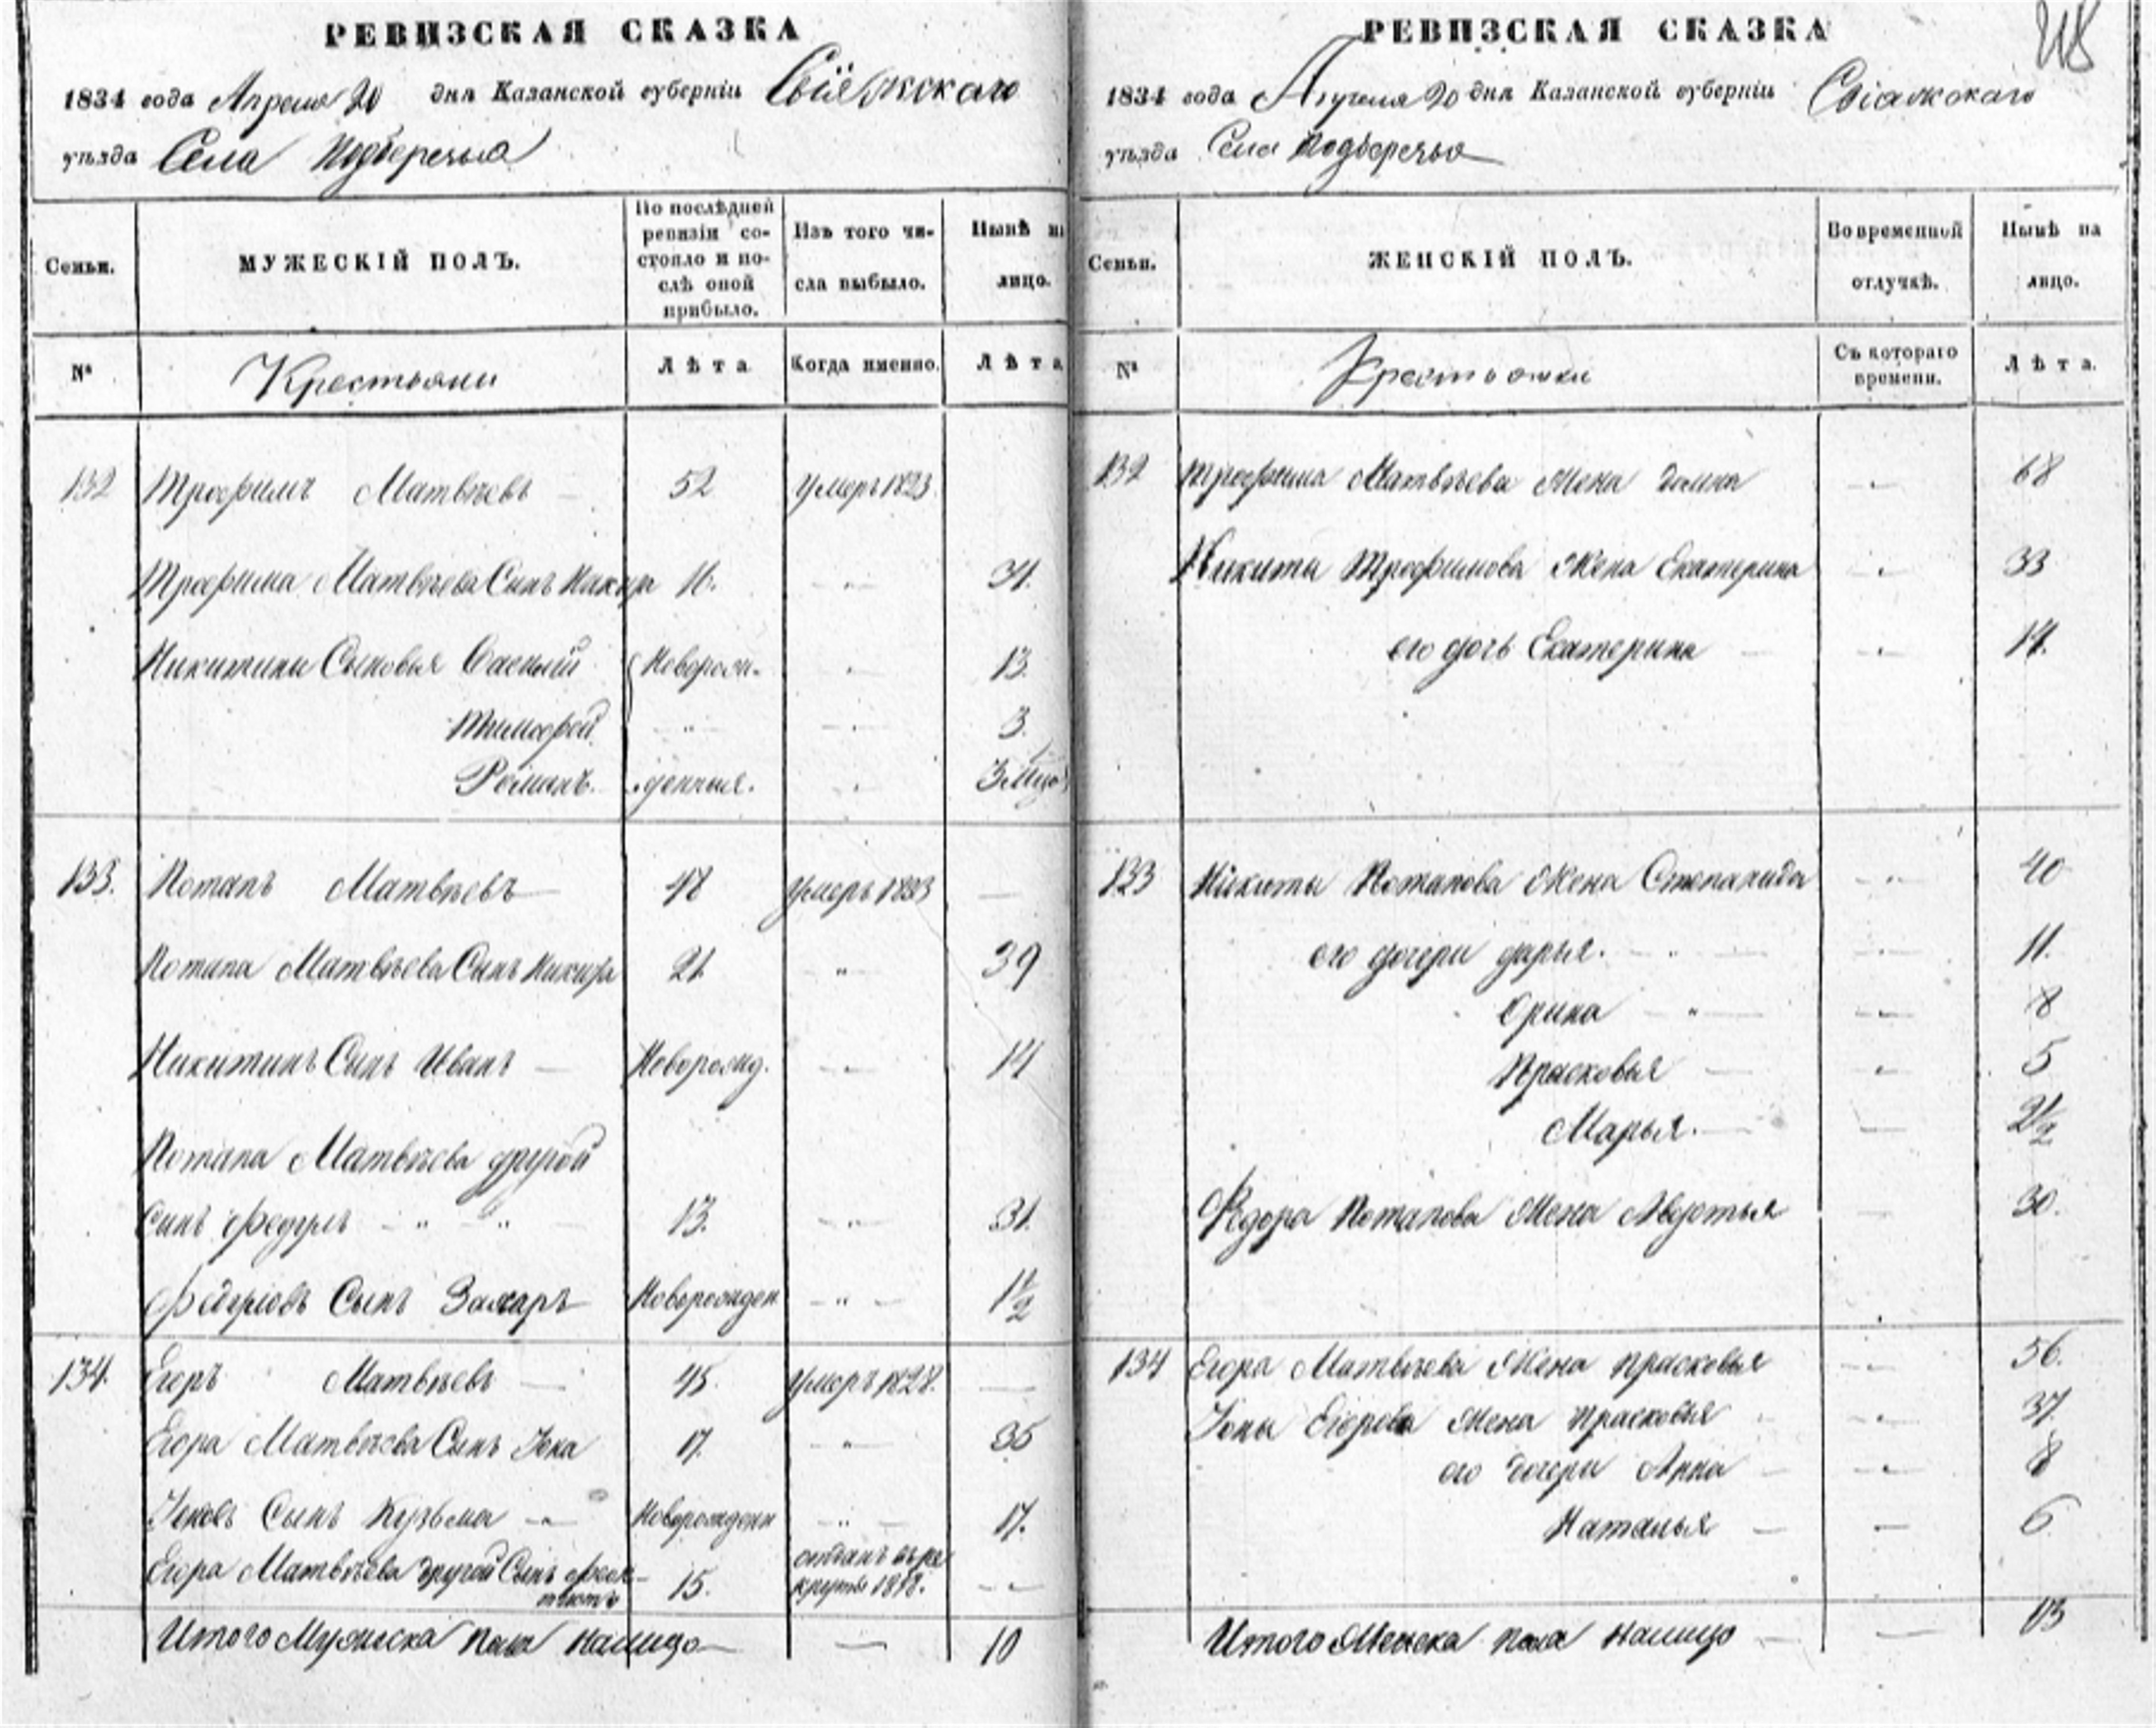 РЕВИЗСКАЯ СКАЗКА
1834 года Апреля 20 дня Казанской губерніи Свіяжскаго
уѣзда Села Подберечья
Семьи.
МУЖЕСКІЙ ПОЛЪ.
По послѣдней
ревизіи со-
стояло и по-
слѣ оной
прибыло.
Изъ того чи-
сла выбыло.
Нынѣ на
лицо.
№
Крестьяни
Лѣта
Когда именно.
Лѣта
132 Трофимъ Матвѣевъ — 52 умеръ 1823
Трофима Матвѣева Сынъ Никита 16. 31.
Никитины Сыновья Василій Новорож- 13
Тимофей 3.
Романъ. денныя. 3 мцо
133. Потапъ Матвѣевъ — 48 умеръ 1833 —
Потапа Матвѣева Сынъ Никита 21 " 39
Никитинъ Сынъ Иванъ — Новорожд. 14
Потапа Матвѣева другой
Сынъ Федоръ " " 13. " 31.
Федоровъ Сынъ Захаръ Новорожден " 1 1/2
134. Егоръ Матвѣевъ — 45 умеръ 1828. —
Егора Матвѣева Сынъ Іона 17. " 35
Іоновъ Сынъ Кузьма Новорожденн " 17.
Егора Матвѣева другой Сынъ Феок-
тистъ 15. отданъ въ ре
круты 1818.
Итого Мужеска пола налицо — 10
РЕВИЗСКАЯ СКАЗКА
1834 года Апреля 20 дня Казанской губерніи Свіажскаго
уѣзда Села Подберечья
Семьи.
ЖЕНСКІЙ ПОЛЪ.
Во временной
отлучкѣ.
Нынѣ на
лицо.
№
Крестьянки
Съ котораго
времени.
Лѣта.
132 Трофима Матвѣева Жена Домна 68
Никиты Трофимова Жена Екатерина 33
его дочь Екатерина 14.
133 Никиты Потапова Жена Степанида 40
его дочери Дарья. 11.
Орина " 8
Прасковья — 5
Марья. — 2 1/2
Федора Потапова Жена Авдотья 30.
134 Егора Матвѣева Жена Прасковья 56.
Іоны Егорова Жена Прасковья 37.
его дочери Анна 8
Наталья — 6
Итого Женска пола налицо 13